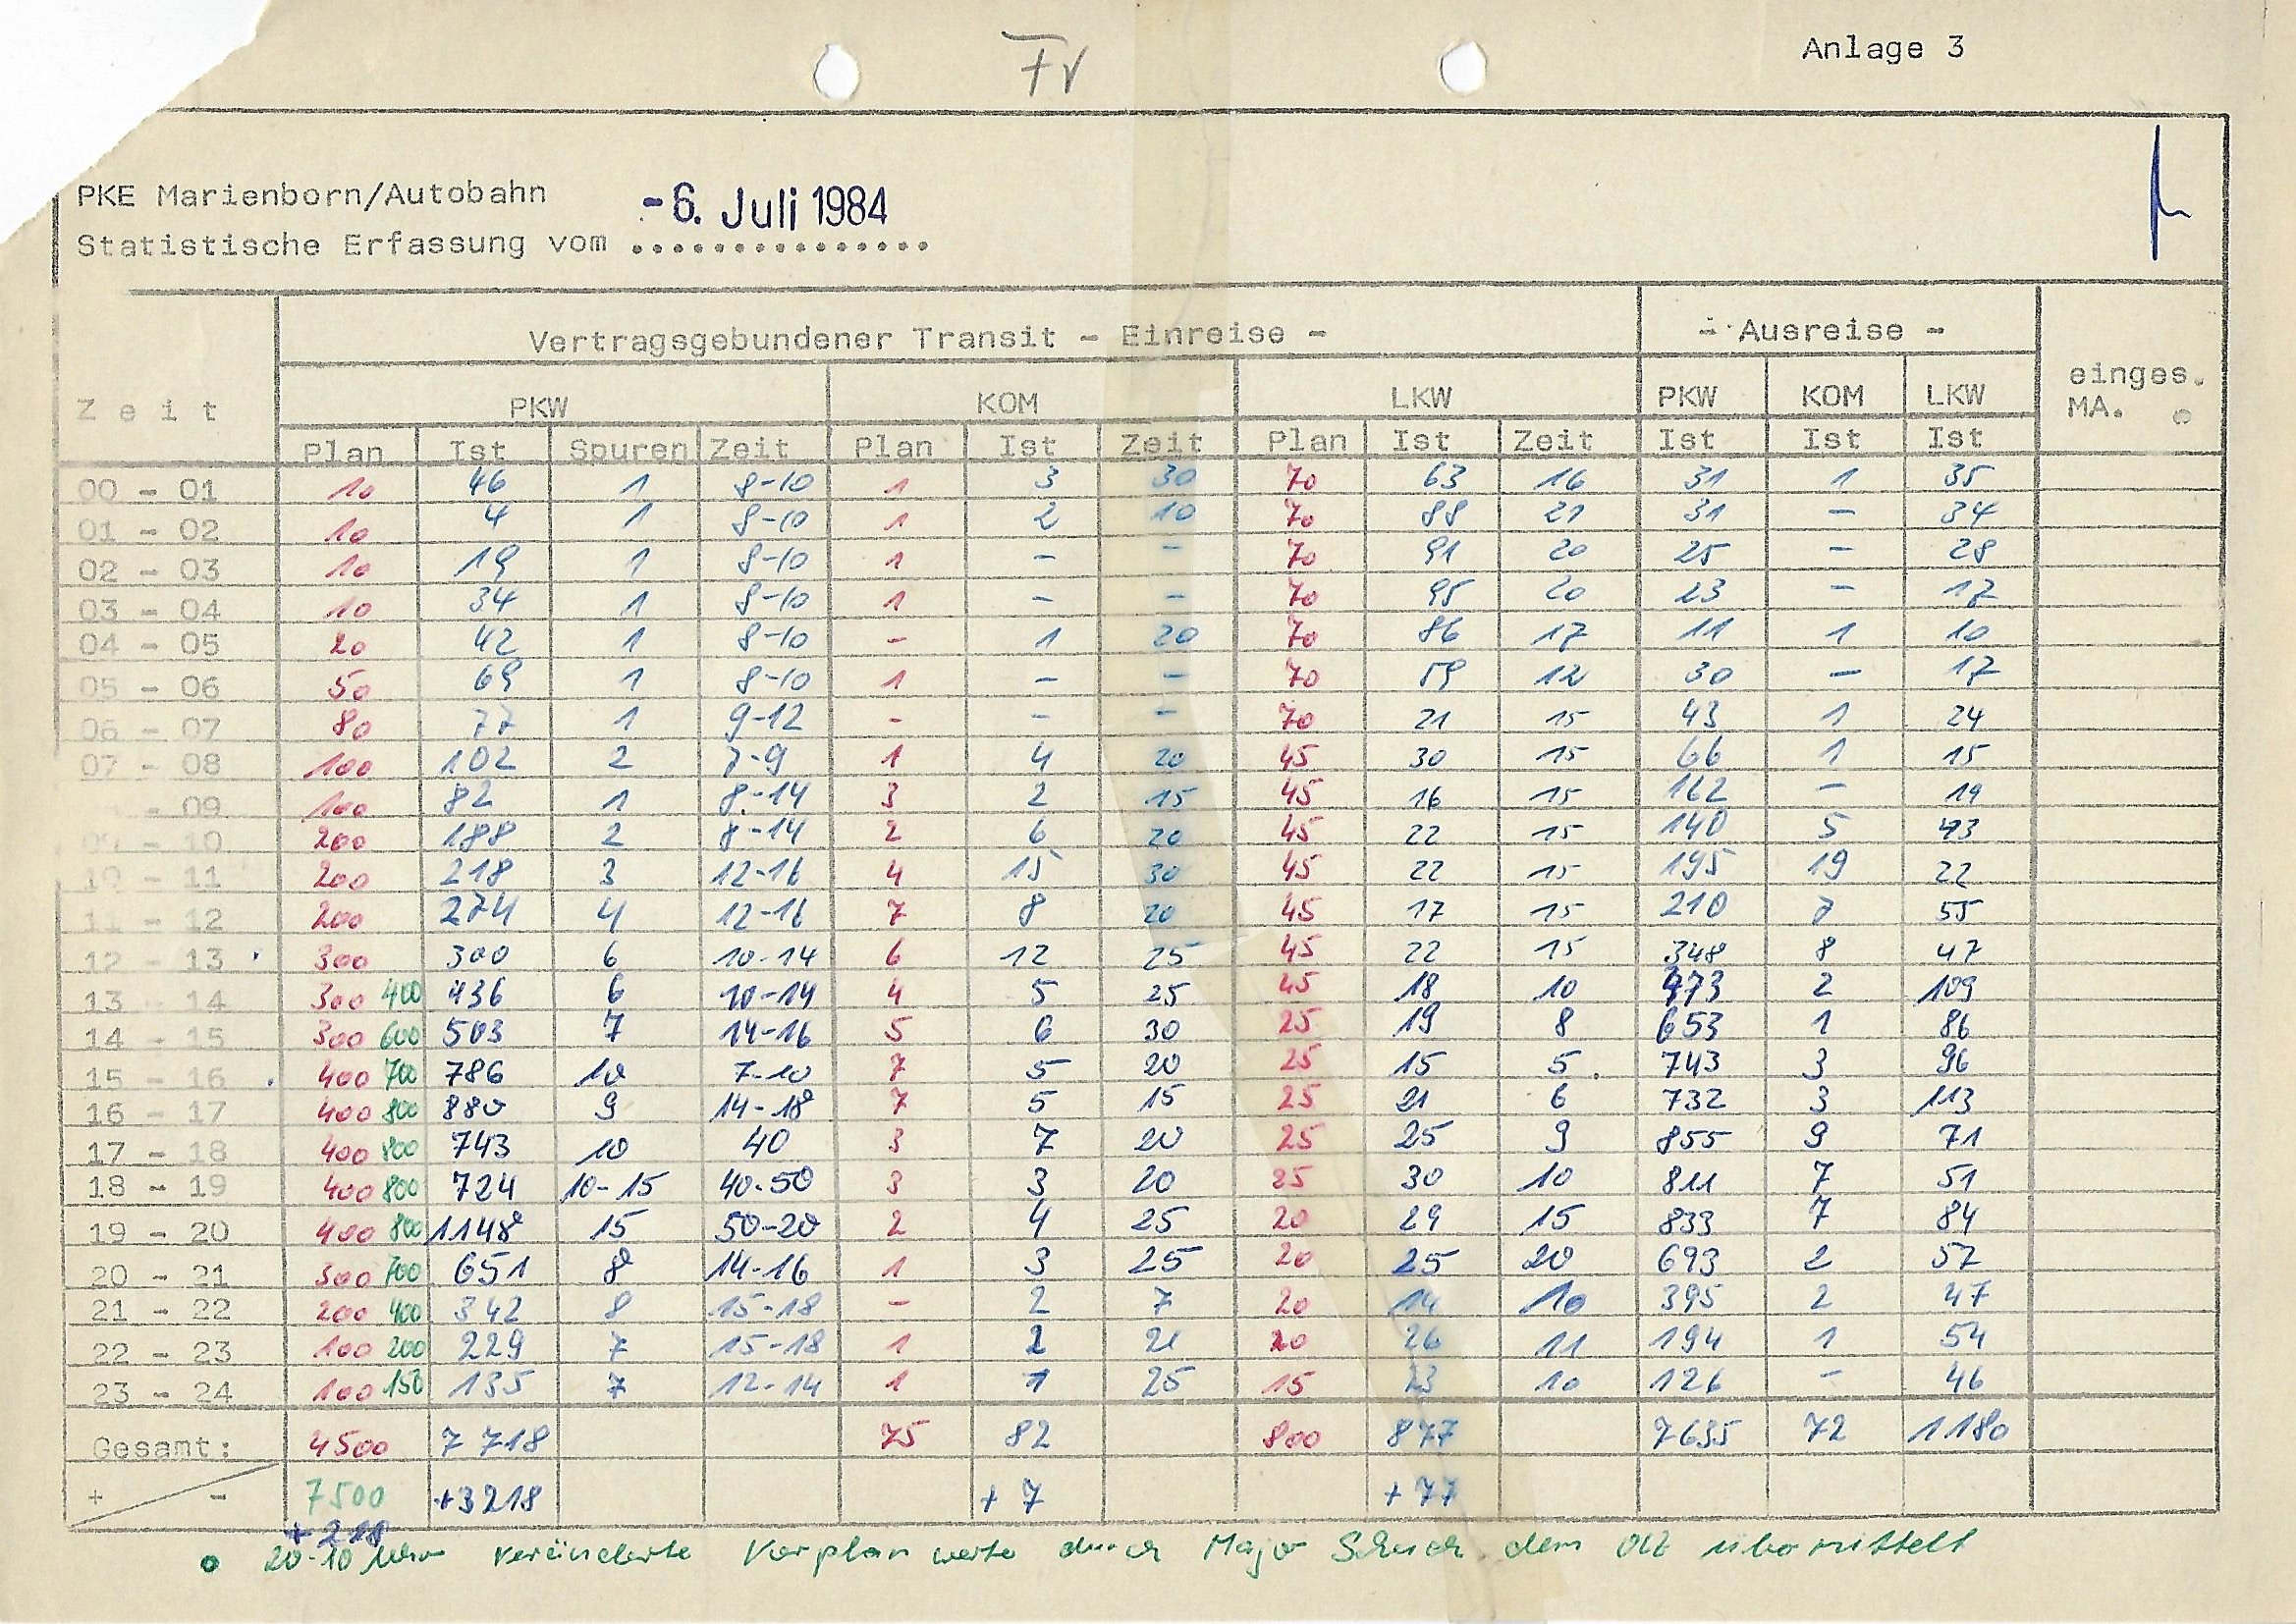 Fr
Anlage 3
PKE Marienborn/Autobahn
-6. Juli 1984
Statistische Erfassung vom ...............
Vertragsgebundener Transit - Einreise - - Ausreise -
Zeit PKW KOM LKW PKW KOM LKW einges. MA.
Plan Ist Spuren Zeit Plan Ist Zeit Plan Ist Zeit Ist Ist Ist
00 - 01 10 46 1 8-10 1 3 30 70 63 16 31 1 35
01 - 02 10 4 1 8-10 1 2 10 70 88 21 31 - 34
02 - 03 10 19 1 8-10 1 - - 70 91 20 25 - 28
03 - 04 10 34 1 8-10 1 - - 70 95 20 23 - 17
04 - 05 20 42 1 8-10 - 1 20 70 86 17 11 1 10
05 - 06 50 69 1 8-10 1 - - 70 59 12 30 - 17
06 - 07 80 77 1 9-12 - - - 70 21 15 43 1 24
07 - 08 100 102 2 7-9 1 4 20 45 30 15 66 1 15
- 09 100 82 1 8-14 3 2 15 45 16 15 162 - 19
09 - 10 200 188 2 8-14 2 6 20 45 22 15 140 5 43
10 - 11 200 218 3 12-16 4 15 30 45 22 15 195 19 22
11 - 12 200 274 4 12-16 7 8 20 45 17 15 210 7 55
12 - 13 300 300 6 10-14 6 12 25 45 22 15 348 8 47
13 - 14 300 400 436 6 10-14 4 5 25 45 18 10 473 2 109
14 - 15 300 600 503 7 14-16 5 6 30 25 19 8 653 1 86
15 - 16 400 700 786 10 7-10 7 5 20 25 15 5 743 3 96
16 - 17 400 800 880 9 14-18 7 5 15 25 21 6 732 3 113
17 - 18 400 800 743 10 40 3 7 20 25 25 9 855 9 71
18 - 19 400 800 724 10-15 40-50 3 3 20 25 30 10 811 7 51
19 - 20 400 800 1148 15 50-20 2 4 25 20 29 15 833 7 84
20 - 21 300 700 651 8 14-16 1 3 25 20 25 20 693 2 57
21 - 22 200 400 342 8 15-18 - 2 7 20 14 10 395 2 47
22 - 23 100 200 229 7 15-18 1 2 21 20 26 11 194 1 54
23 - 24 100 150 135 7 12-14 1 1 25 15 23 10 126 - 46
Gesamt: 4500 7 718 75 82 800 877 7635 72 1180
+ - 7500 +3218 + 7 + 77
+ 218
20-10 Uhr veränderte Vorplanwerte durch Major dem OLZ übermittelt